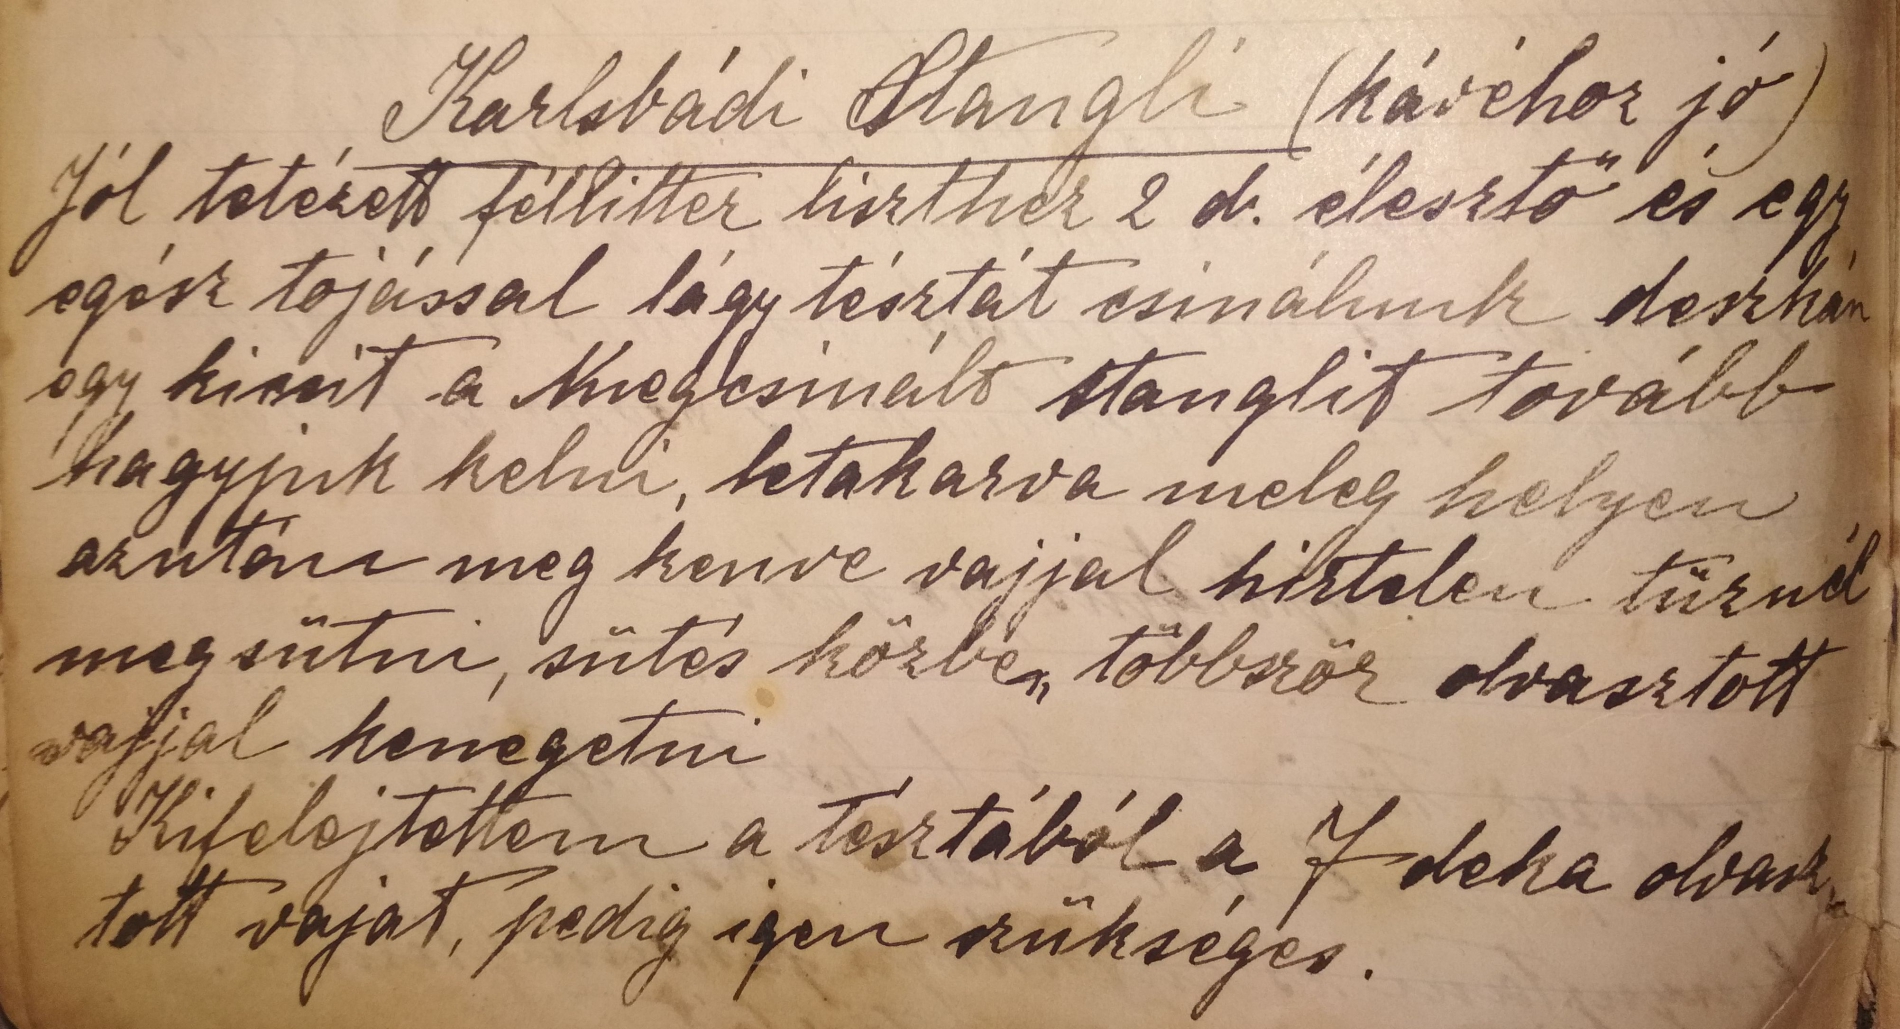 Karlsbádi Stangli (kávéhoz jó)
Jól tetézett féllitter liszthez 2 d. élesztő és egy
egész tojással lágy tésztát csinálunk deszkán
egy kicsit a megcsinált stanglit tovább
hagyjuk kelni, letakarva meleg helyen
azután meg kenve vajjal hirtelen tűznél
megsütni, sütés közbe„ többször olvasztott
vajjal kenegetni
Kifelejtettem a tésztából a 7 deka olvasz„
tott vajat, pedig igen szükséges.